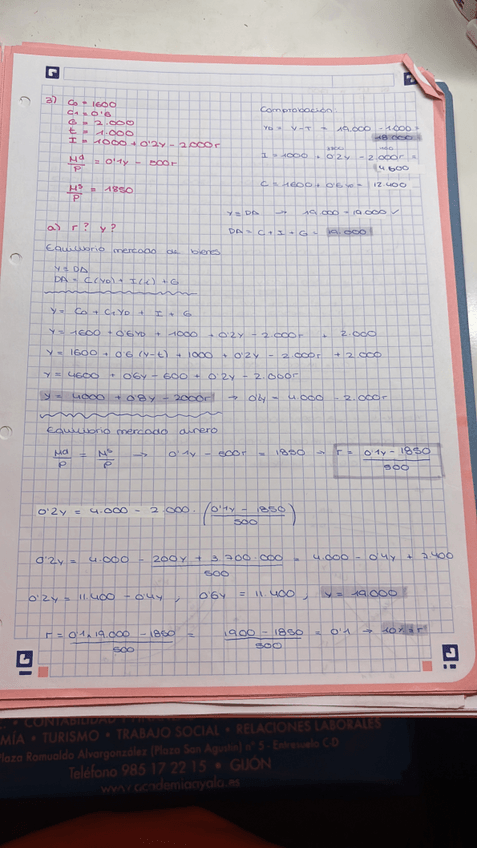 3) C0 = 1600
C1 = 0'6
G = 2.000
t = 1.000
I = 1000 + 0'2Y - 2.000r
Md/P = 0'1Y - 500r
Ms/P = 1850
Comprobación:
YD = Y - T = 19.000 - 1.000 = 18.000
I = 1000 + 0'2Y - 2.000r = 4.600
C = 1600 + 0'6YD = 12.400
Y = DA → 19.000 = 19.000 ✓
DA = C + I + G = 19.000
a) r? Y?
Equilibrio mercado de bienes
Y = DA
DA = C(YD) + I(r) + G
Y = C0 + C1YD + I + G
Y = 1600 + 0'6YD + 1000 + 0'2Y - 2.000r + 2.000
Y = 1600 + 0'6 (Y - t) + 1000 + 0'2Y - 2.000r + 2.000
Y = 4600 + 0'6Y - 600 + 0'2Y - 2.000r
Y = 4000 + 0'8Y - 2000r → = 4.000 - 2.000r
Equilibrio mercado dinero
Md/P = Ms/P → 0'1Y - 500r = 1850 → r = (0'1Y - 1850)/500
0'2Y = 4.000 - 2.000 · ((0'1Y - 1850)/500)
0'2Y = 4.000 - (200Y + 3.700.000)/500 = 4.000 - 0'4Y + 7.400
0'2Y = 11.400 - 0'4Y , 0'6Y = 11.400 , Y = 19.000
r = (0'1 x 19.000 - 1850)/500 = (1900 - 1850)/500 = 0'1 → 10% = r
CONTABILIDAD
MÍA • TURISMO • TRABAJO SOCIAL • RELACIONES LABORALES
Plaza Romualdo Alvargonzález (Plaza San Agustín) nº 5 - Entresuelo C-D
Teléfono 985 17 22 15 • GIJÓN
www.academiaayala.es